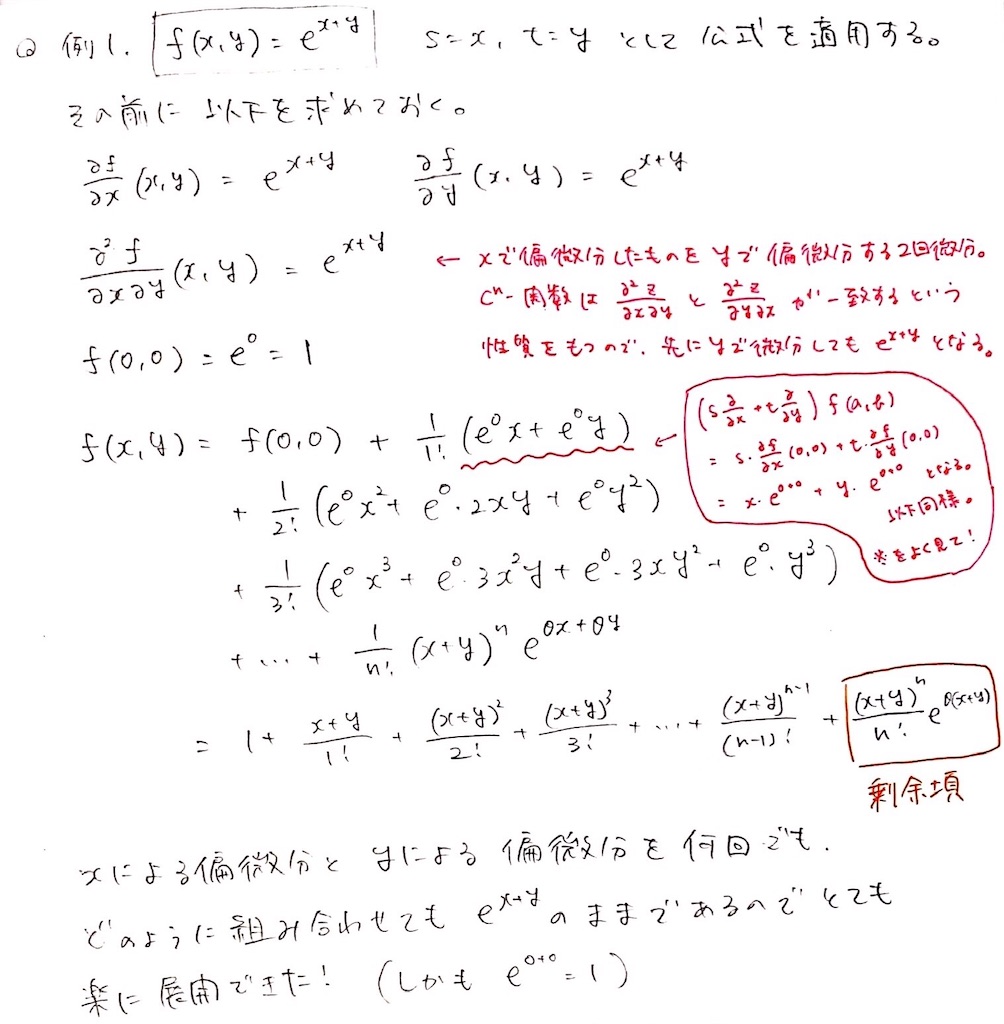 ◎ 例1. f(x,y) = e^{x+y} s=x, t=y として公式を適用する。
その前に以下を求めておく。
∂f/∂x (x,y) = e^{x+y} ∂f/∂y (x,y) = e^{x+y}
∂²f/∂x∂y (x,y) = e^{x+y}
← xで偏微分したものをyで偏微分する2回微分。
Cⁿ-関数は ∂²z/∂x∂y と ∂²z/∂y∂x が一致するという
性質をもつので、先にyで微分しても e^{x+y} となる。
f(0,0) = e⁰ = 1
f(x,y) = f(0,0) + 1/1! (e⁰x + e⁰y) ←
(s ∂/∂x + t ∂/∂y) f(a,b)
= s・∂f/∂x (0,0) + t・∂f/∂y (0,0)
= x・e^{0+0} + y・e^{0+0} となる。
以下同様。
※をよく見て!
+ 1/2! (e⁰x² + e⁰・2xy + e⁰y²)
+ 1/3! (e⁰x³ + e⁰・3x²y + e⁰・3xy² + e⁰・y³)
+ … + 1/n! (x+y)ⁿ e^{θx+θy}
= 1 + (x+y)/1! + (x+y)²/2! + (x+y)³/3! + … + (x+y)^{n-1}/(n-1)! + (x+y)ⁿ/n! e^{θ(x+y)}
剰余項
xによる偏微分とyによる偏微分を何回でも、
どのように組み合わせても e^{x+y} のままであるのでとても
楽に展開できた! (しかも e^{0+0} = 1)